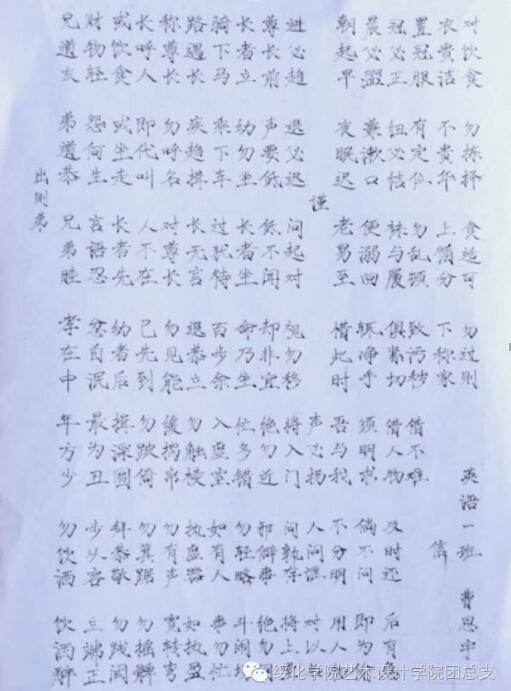 出则弟
兄道友 弟道恭 兄弟睦 孝在中 年方少 勿饮酒 饮酒醉
财物轻 怨何生 言语忍 忿自泯 最为丑 步从容 立端正
或饮食 或坐走 长者先 幼者后 揖深圆 拜恭敬 勿践阈
长呼人 即代叫 人不在 己先到 勿跛倚 勿箕踞 勿摇髀
称尊长 勿呼名 对尊长 勿见能 缓揭帘 勿有声 宽转弯
路遇长 疾趋揖 长无言 退恭立 勿触棱 执虚器 如执盈
骑下马 乘下车 过犹待 百步余 入虚室 如有人 事勿忙
长者立 幼勿坐 长者坐 命乃坐 忙多错 勿轻略 斗闹
尊长前 声要低 低不闻 却非宜 绝勿近 邪僻事 绝勿
进必趋 退必迟 问起对 视勿移 将入门 问孰存 将上
声必扬 人问谁 对以
谨
朝起早 夜眠迟 老易至 惜此时 吾与我 不分明 用人
晨必盥 兼漱口 便溺回 辄净手 须明求 倘不问 即为
冠必正 纽必结 袜与履 俱紧切 借人物 及时还 后有
置冠服 有定位 勿乱顿 致污秽 借不难
衣贵洁 不贵华 上循分 下称家
信
对饮食 勿拣择 食适可 勿过则
英语一班 费思宇
绥化学院艺术设计学院团总支